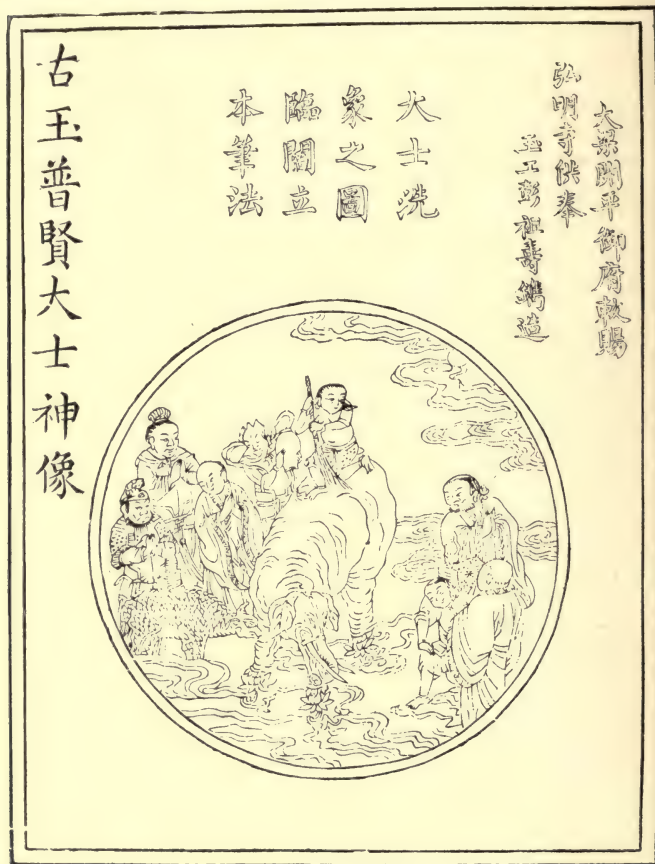 大梁開平御府敕賜
弘明寺供奉
玉工彭祖壽鐫造
大士洗
象之圖
臨閻立
本筆法
古玉普賢大士神像